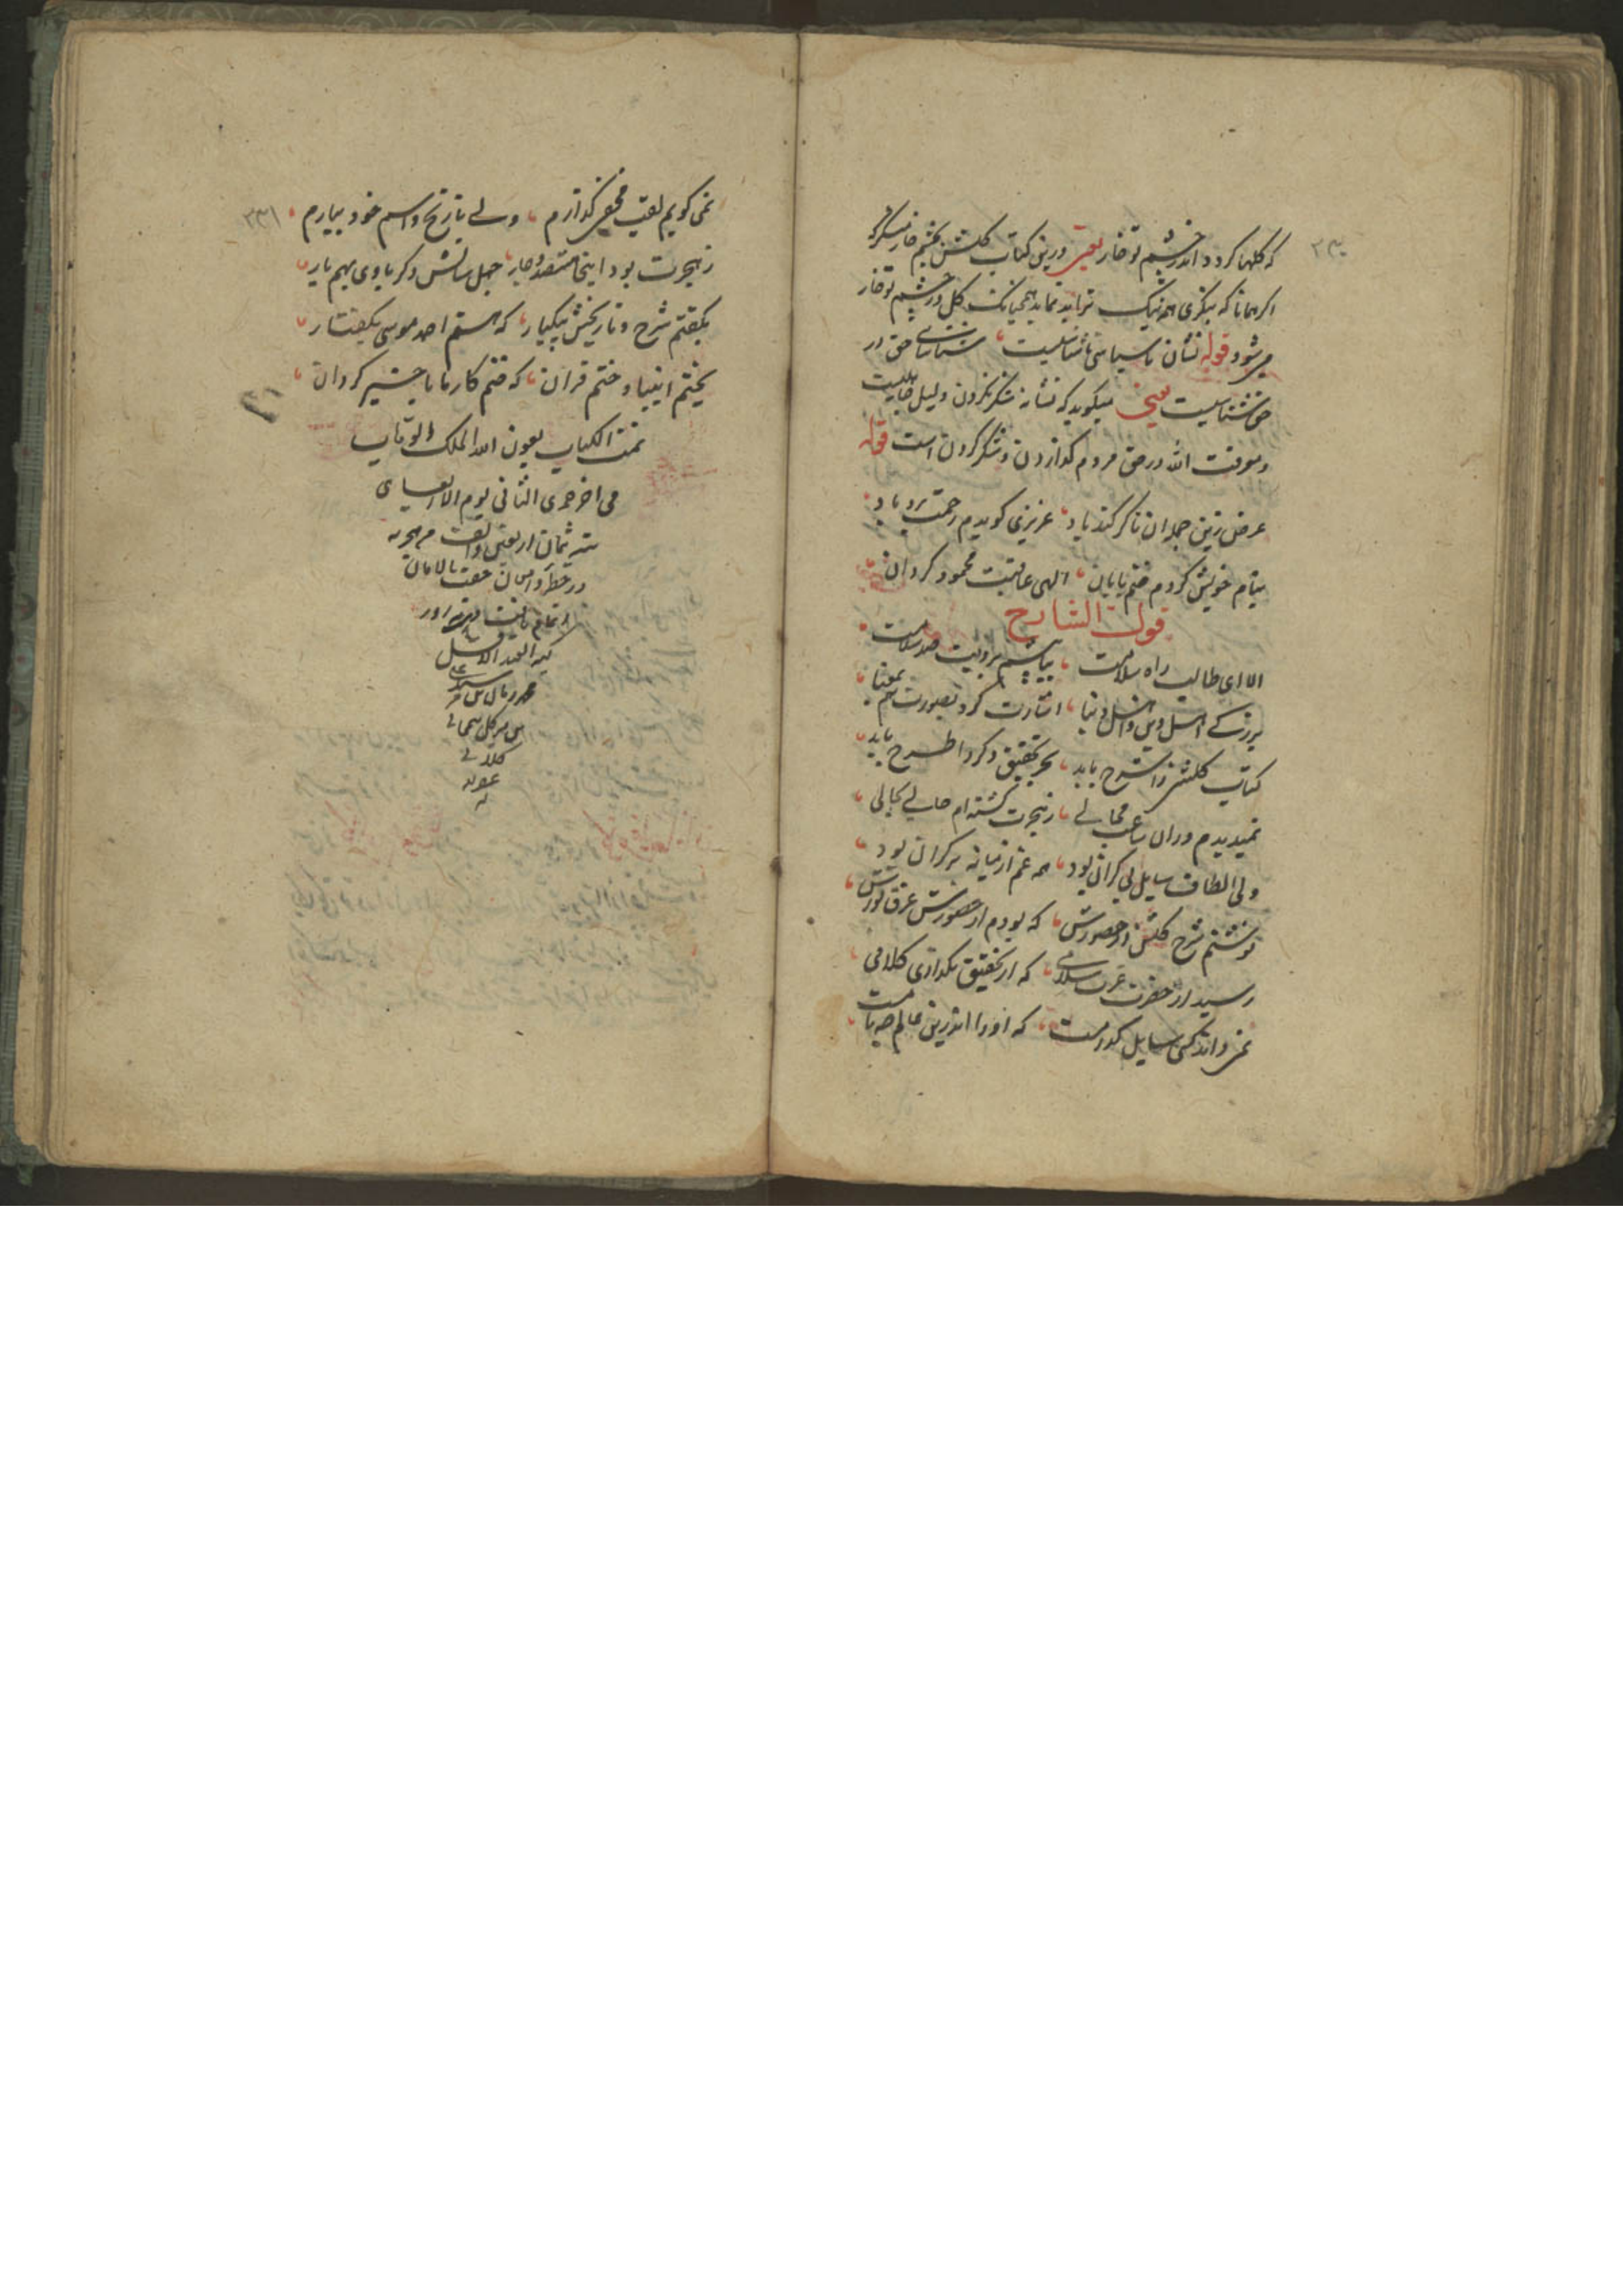 ۲۳۰
که گلها گردد اندر چشم تو خار یعنی درین کتاب گلشن بچشم خار منگر که
اگر همانا که بنگری همه نیک نماید همچنانکه گل در چشم تو خار
می شود قوله نشان ناسپاسی ناشناسیست شناسائی حق در
حق شناسیست یعنی میگوید که نشانه شکر نکردن دلیل جاهلیست
و معرفت الله در حق مردم گذاردن و شکر کردن است قوله
غرض زین جمله ان تا گر کند یاد عزیزی گویدم رحمت برو باد
بنام خویش کردم ختم پایان الهی عاقبت محمود گردان
قول الشارح
الا ای طالب راه سلامت بروایت صد سلامت
بزرگی اصل دین و اصل دنیا اشارت کرد بصورت هم بمعنا
کتاب گلشن را شرح باید بحر تحقیق دگر را طرح باید
نمیدیدم دران ساعت مجالی ز هجرت گشته ام حالی بحالی
ولی الطاف سایل بی کران بود همه غم از میانه بر کران بود
نوشتم شرح گلشن از حضورش که بودم از حضورش غرق نورش
رسید از حضرت عزت سلامی که از تحقیق بگذاری کلامی
نمی داند کسی سایل کدامست که او را اندرین عالم چه نامست
۲۳۱
نمی گویم لقب مخفی گذارم ولی تاریخ و اسم خود بیارم
ز هجرت بود اینجا هشتصد و چار چهل سالش دگر با وی بهم یار
بگفتم شرح و تاریخش بیکبار که هستم احمد موسی بگفتار
بختم انبیا و ختم قران که ختم کار ما با خیر گردان
تمت الکتاب بعون الله الملک الوهاب
فی اخر جمدی الثانی یوم الاربعا
سنه ثمان اربعین و الف من هجریه
در خطه
اتمام یافت
کتبه العبد الاقل
محمد